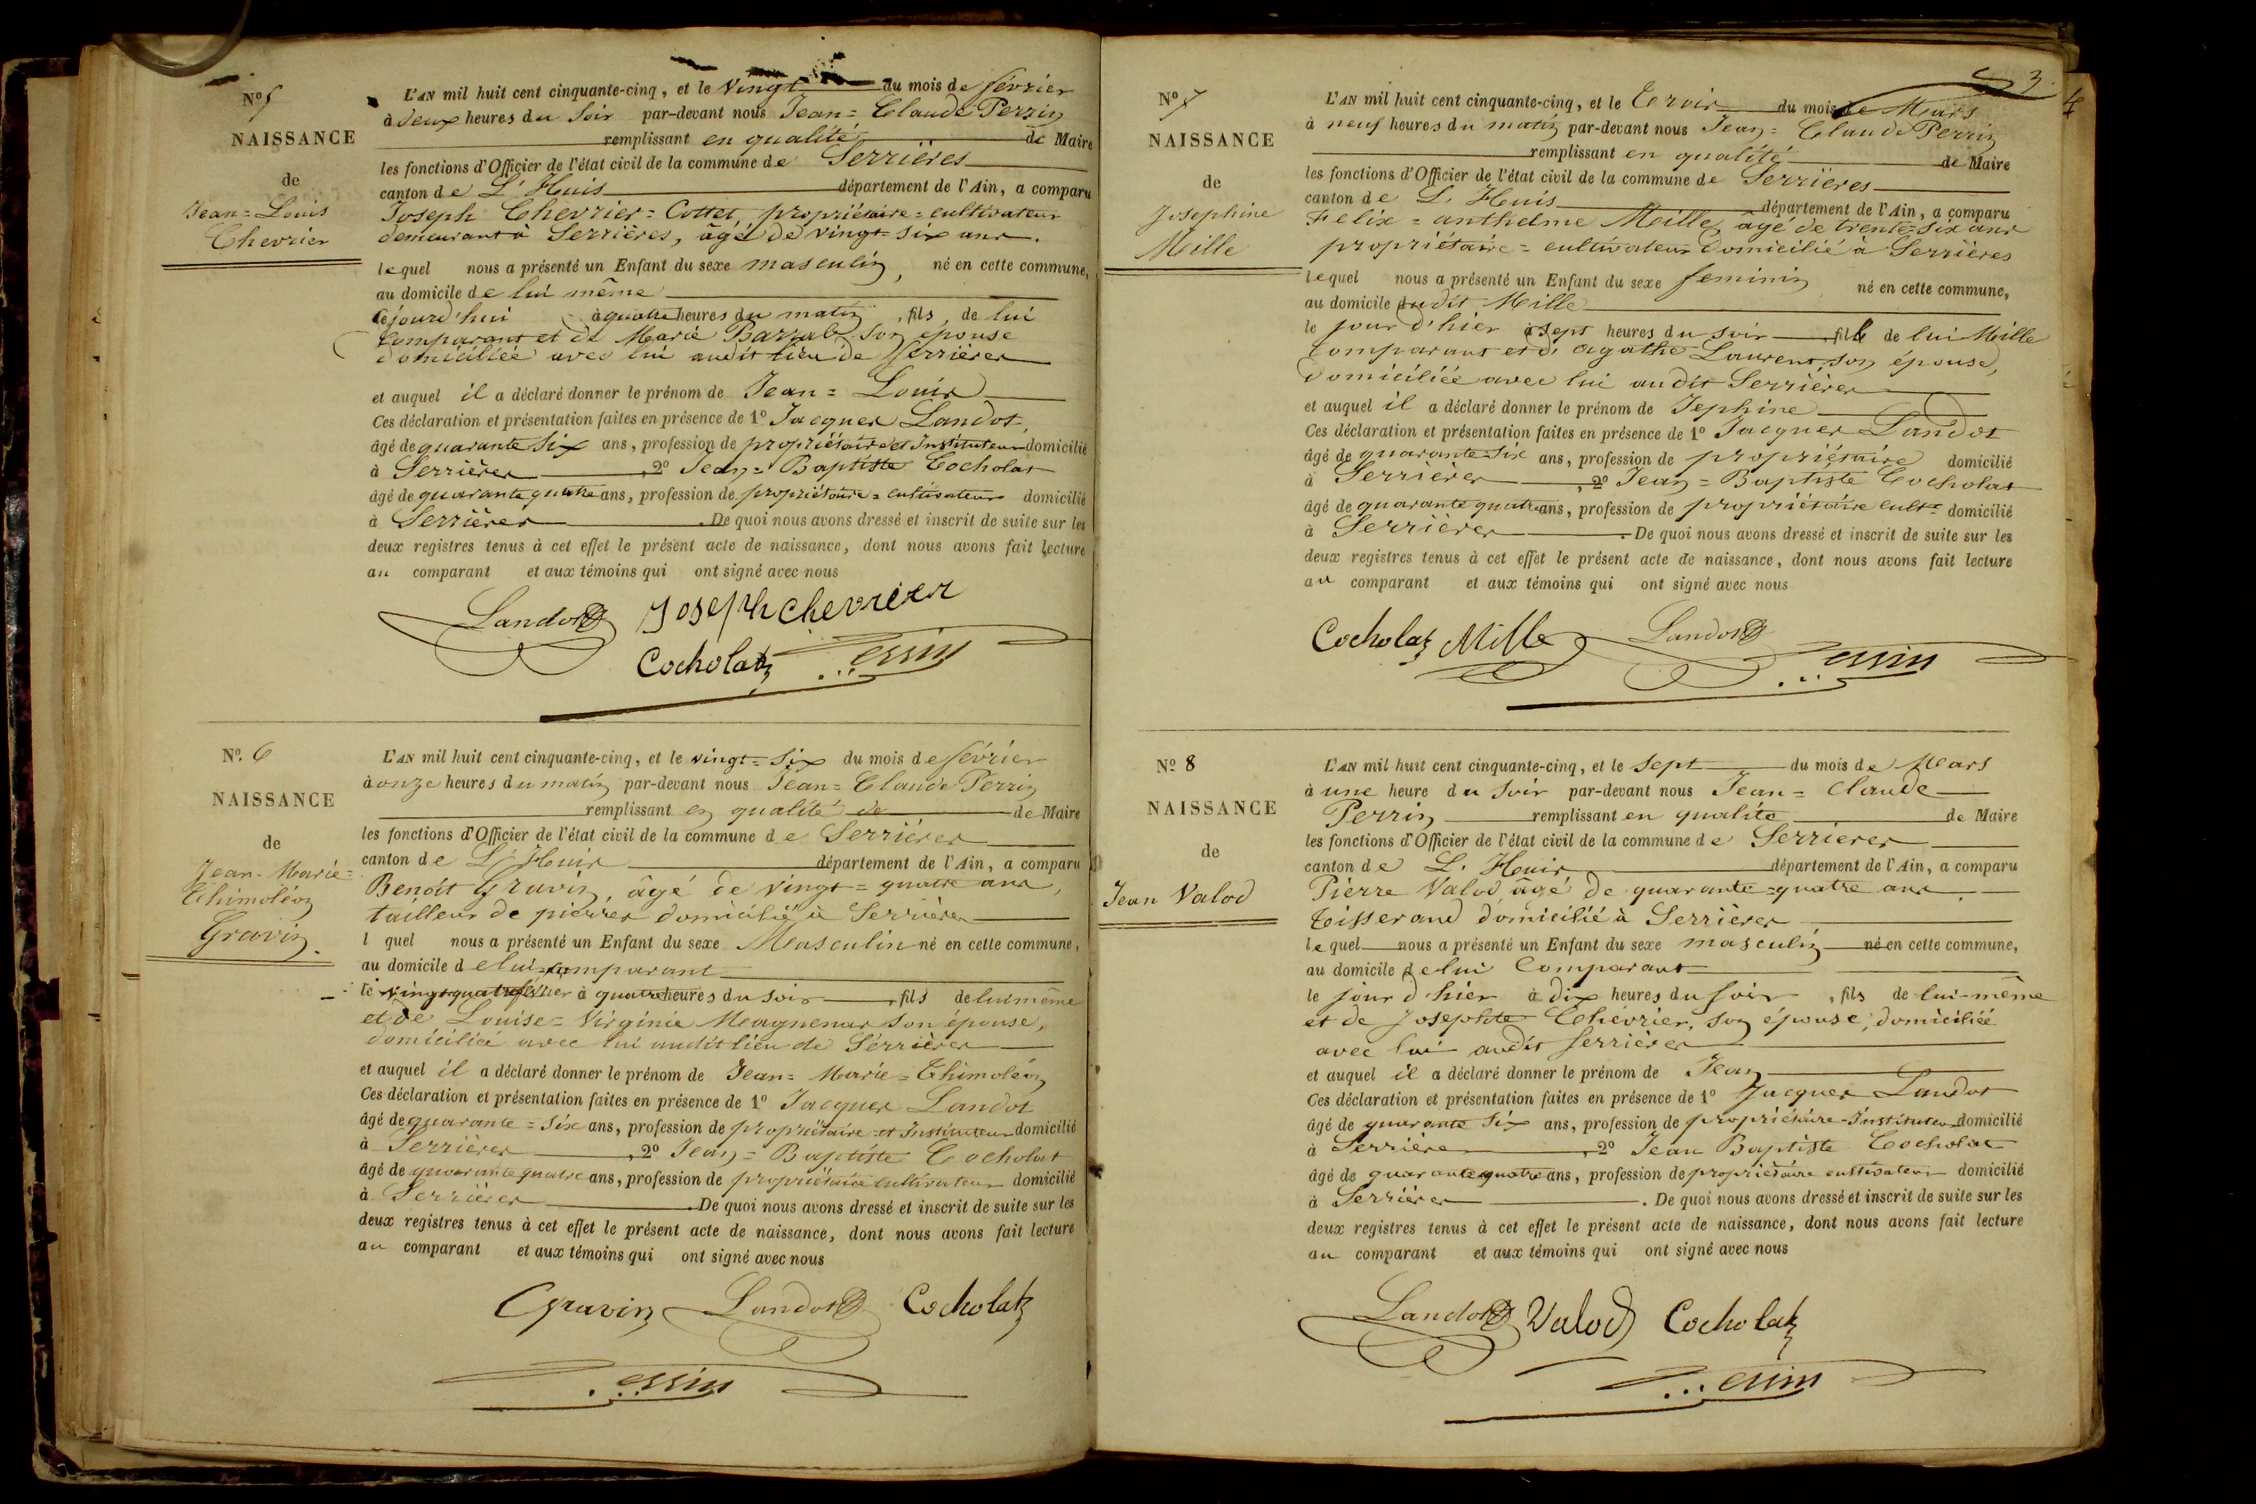 Nº 5
NAISSANCE
de
Jean = Louis
Chevrier
L'AN mil huit cent cinquante-cinq, et le Vingt du mois de février
à deux heures du Soir par-devant nous Jean = Claude Perrin
remplissant en qualité de Maire
les fonctions d'Officier de l'état civil de la commune de Serrières
canton de L'Huis département de l'Ain, a comparu
Joseph Chevrier = Cottet, propriétaire = cultivateur
demeurant à Serrières, âgé de vingt = six ans.
lequel nous a présenté un Enfant du sexe masculin, né en cette commune,
au domicile de lui même
cejourd'hui à quatre heures du matin, fils de lui
Comparant et de Marie son épouse
domiciliée avec lui audit lieu de Serrières
et auquel il a déclaré donner le prénom de Jean = Louis
Ces déclaration et présentation faites en présence de 1º Jacques Landot,
âgé de quarante six ans, profession de propriétaire et Instituteur domicilié
à Serrières, 2º Jean = Baptiste Cocholat
âgé de quarante quatre ans, profession de propriétaire = cultivateur domicilié
à Serrières. De quoi nous avons dressé et inscrit de suite sur les
deux registres tenus à cet effet le présent acte de naissance, dont nous avons fait lecture
au comparant et aux témoins qui ont signé avec nous
Landot Joseph chevrier
Cocholat Perrin
Nº 6
NAISSANCE
de
Jean-Marie =
Thimoléon
Gravin.
L'AN mil huit cent cinquante-cinq, et le vingt = six du mois de février
à onze heures du matin par-devant nous Jean = Claude Perrin
remplissant en qualité de de Maire
les fonctions d'Officier de l'état civil de la commune de Serrières
canton de L'Huis département de l'Ain, a comparu
Benoit Gravin, âgé de vingt = quatre ans,
tailleur de pierres domicilié à Serrières
l quel nous a présenté un Enfant du sexe Masculin né en cette commune,
au domicile de lui = comparant
le vingt quatre février à quatre heures du soir, fils de lui même
et de Louise = Virginie Magnenus son épouse,
domiciliée avec lui audit lieu de Serrières
et auquel il a déclaré donner le prénom de Jean = Marie = Thimoléon
Ces déclaration et présentation faites en présence de 1º Jacques Landot
âgé de quarante = six ans, profession de propriétaire et Instituteur domicilié
à Serrières, 2º Jean = Baptiste Cocholat
âgé de quarante quatre ans, profession de propriétaire cultivateur domicilié
à Serrières. De quoi nous avons dressé et inscrit de suite sur les
deux registres tenus à cet effet le présent acte de naissance, dont nous avons fait lecture
au comparant et aux témoins qui ont signé avec nous
Gravin Landot Cocholat
Perrin
3
Nº 7
NAISSANCE
de
Josephine
Mille
L'AN mil huit cent cinquante-cinq, et le trois du mois de Mars
à neuf heures du matin par-devant nous Jean = Claude Perrin
remplissant en qualité de Maire
les fonctions d'Officier de l'état civil de la commune de Serrières
canton de L'Huis département de l'Ain, a comparu
Felix = anthelme Mille, âgé de trente = six ans
propriétaire = cultivateur domicilié à Serrières
lequel nous a présenté un Enfant du sexe feminin né en cette commune,
au domicile dudit Mille
le jour d'hier à sept heures du soir fille de lui Mille
comparant et de agathe Laurent, son épouse,
domiciliée avec lui audit Serrières
et auquel il a déclaré donner le prénom de Jephine
Ces déclaration et présentation faites en présence de 1º Jacques Landot
âgé de quarante = six ans, profession de propriétaire domicilié
à Serrières, 2º Jean = Baptiste Cocholat
âgé de quarante quatre ans, profession de propriétaire cultr domicilié
à Serrières. De quoi nous avons dressé et inscrit de suite sur les
deux registres tenus à cet effet le présent acte de naissance, dont nous avons fait lecture
au comparant et aux témoins qui ont signé avec nous
Cocholat Mille Landot
Perrin
Nº 8
NAISSANCE
de
Jean Valod
L'AN mil huit cent cinquante-cinq, et le Sept du mois de Mars
à une heure du Soir par-devant nous Jean = Claude
Perrin remplissant en qualité de Maire
les fonctions d'Officier de l'état civil de la commune de Serrieres
canton de L'Huis département de l'Ain, a comparu
Pierre Valod âgé de quarante = quatre ans.
tisserand domicilié à Serrières
lequel nous a présenté un Enfant du sexe masculin né en cette commune,
au domicile de lui Comparant
le jour d'hier à dix heures du soir, fils de lui-même
et de Josephte Chevrier, son épouse, domiciliée
avec lui audit Serrières
et auquel il a déclaré donner le prénom de Jean
Ces déclaration et présentation faites en présence de 1º Jacques Landot
âgé de quarante six ans, profession de propriétaire-Instituteur domicilié
à Serrières, 2º Jean Baptiste Cocholat
âgé de quarante quatre ans, profession de propriétaire cultivateur domicilié
à Serrières. De quoi nous avons dressé et inscrit de suite sur les
deux registres tenus à cet effet le présent acte de naissance, dont nous avons fait lecture
au comparant et aux témoins qui ont signé avec nous
Landot Valod Cocholat
Perrin